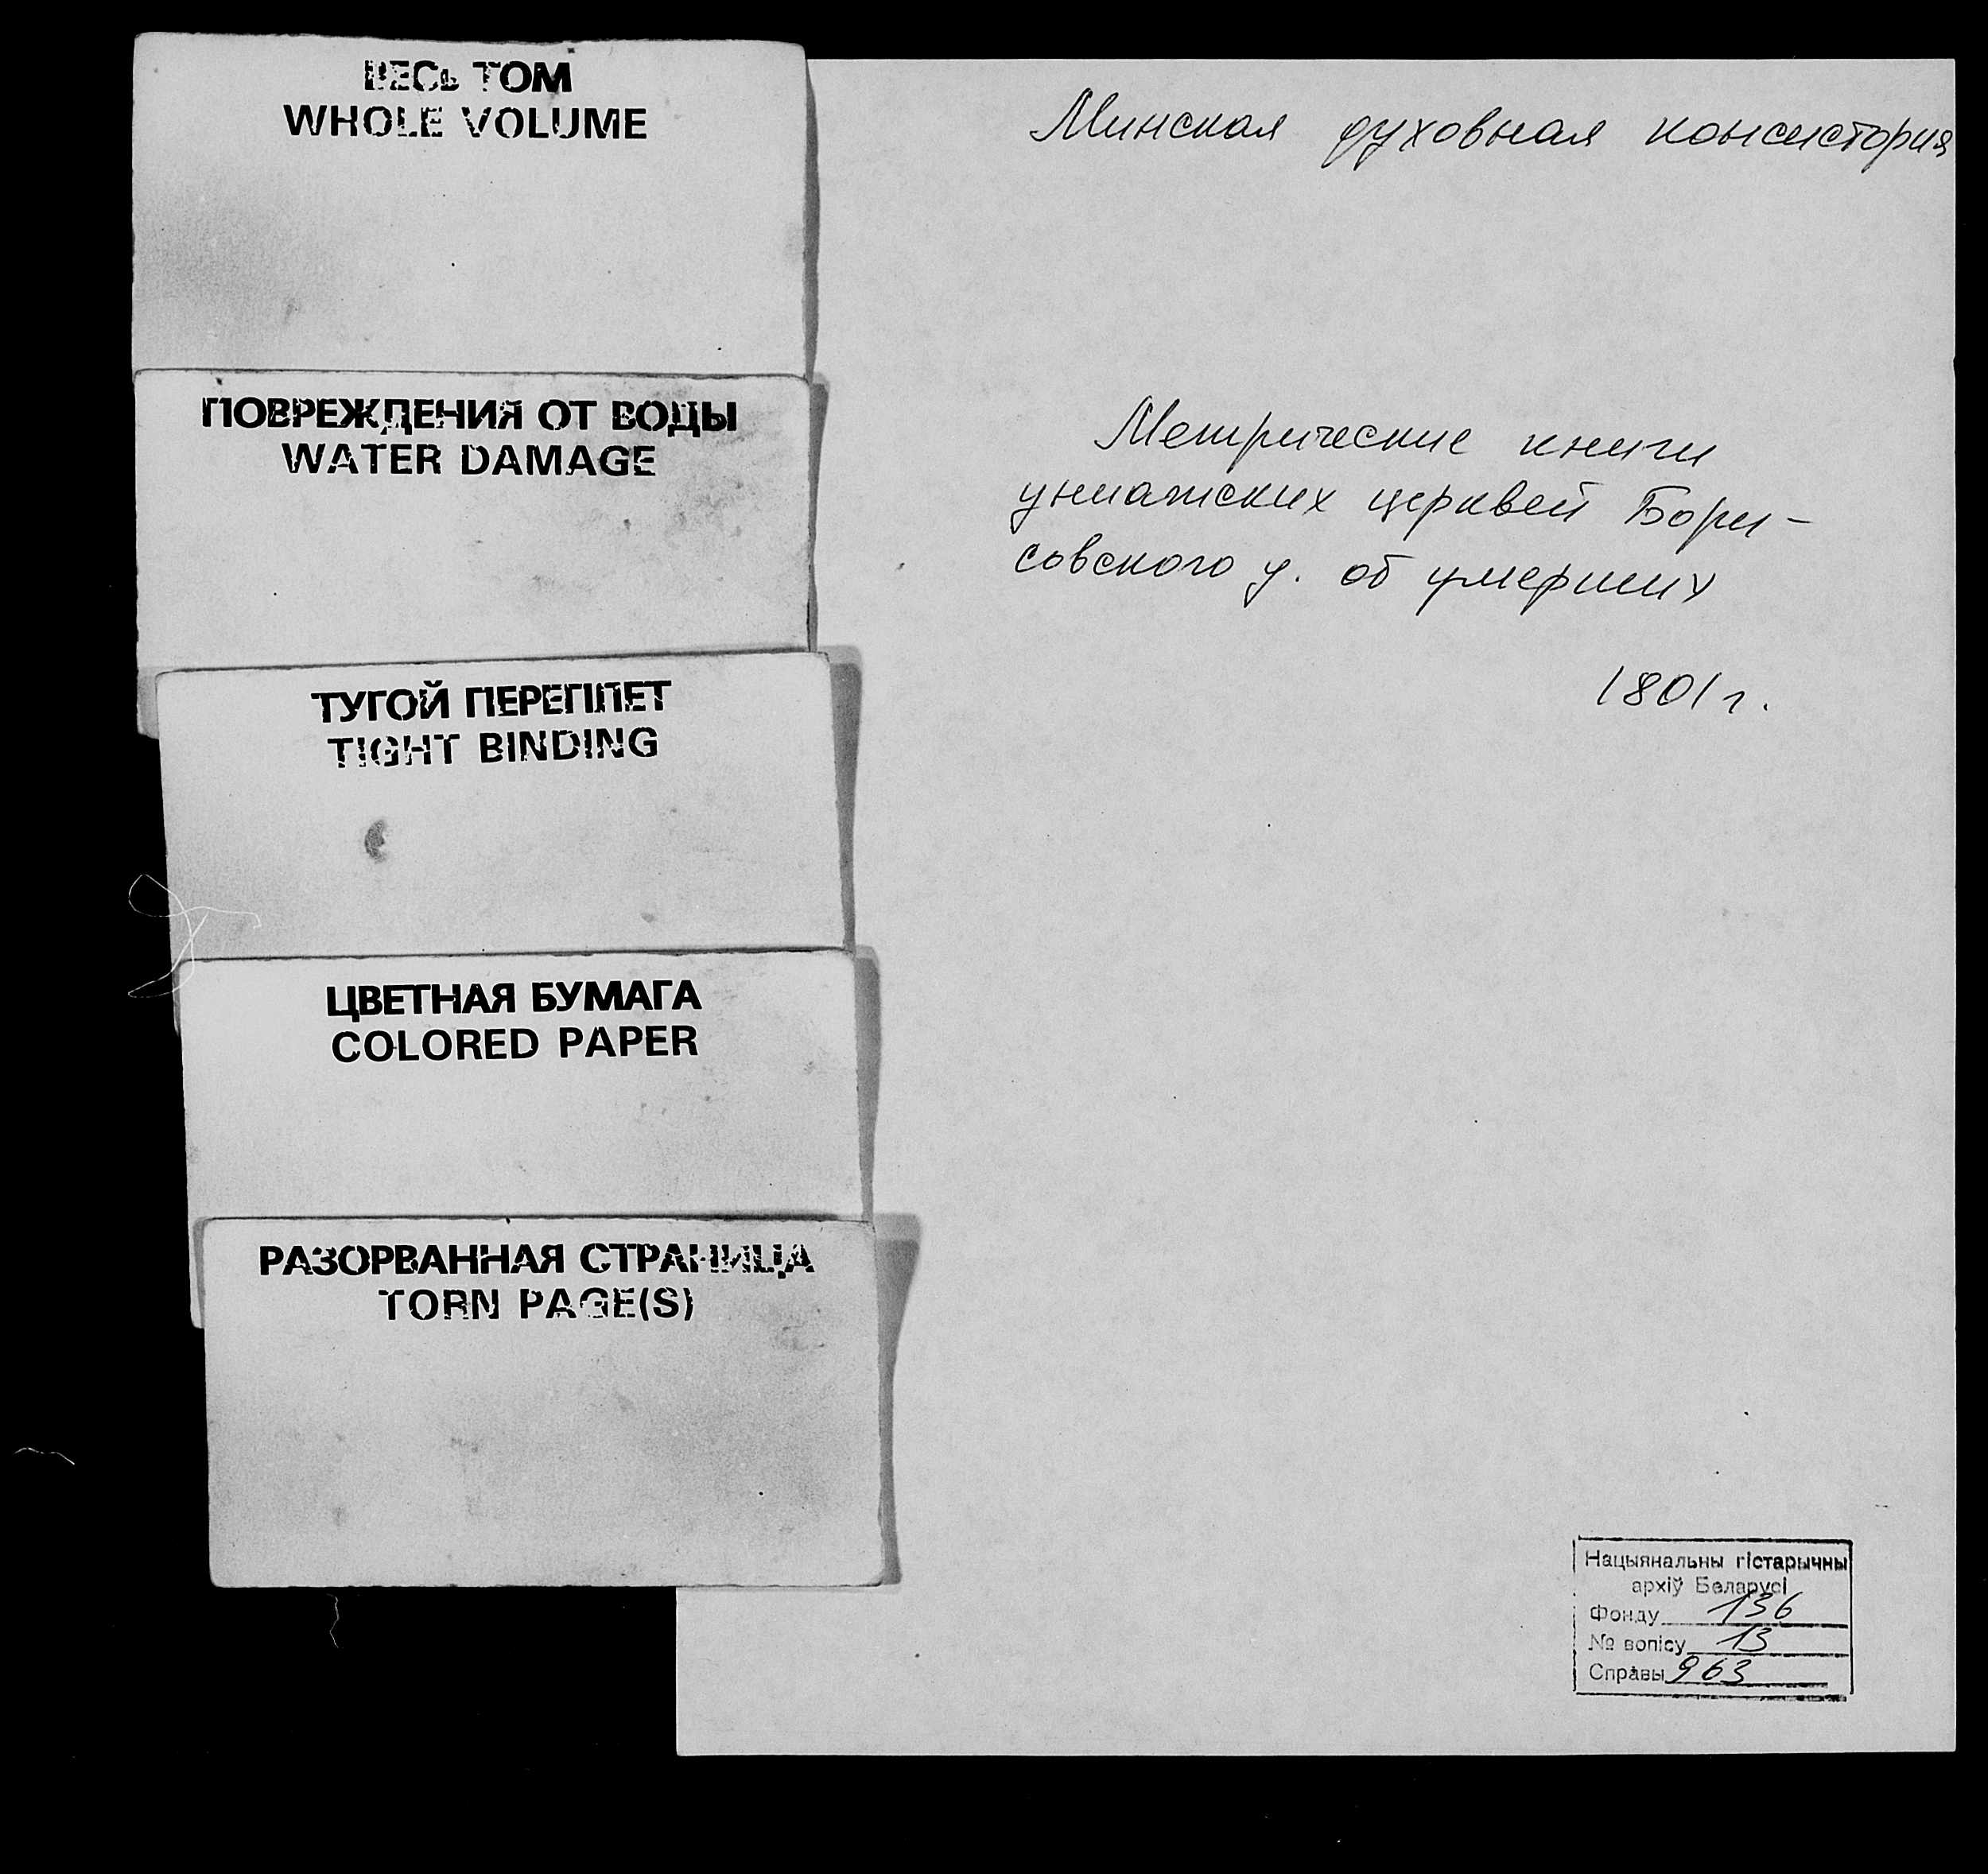 ВЕСЬ ТОМ
WHOLE VOLUME
ПОВРЕЖДЕНИЯ ОТ ВОДЫ
WATER DAMAGE
ТУГОЙ ПЕРЕПЛЕТ
TIGHT BINDING
ЦВЕТНАЯ БУМАГА
COLORED PAPER
РАЗОРВАННАЯ СТРАНИЦА
TORN PAGE(S)
Минская духовная консистория
Метрические книги
униатских церквей Бори-
совского у. об умерших
1801 г.
Нацыянальны гістарычны
архіў Беларусі
Фонду 136
№ вопісу 13
Справы 963